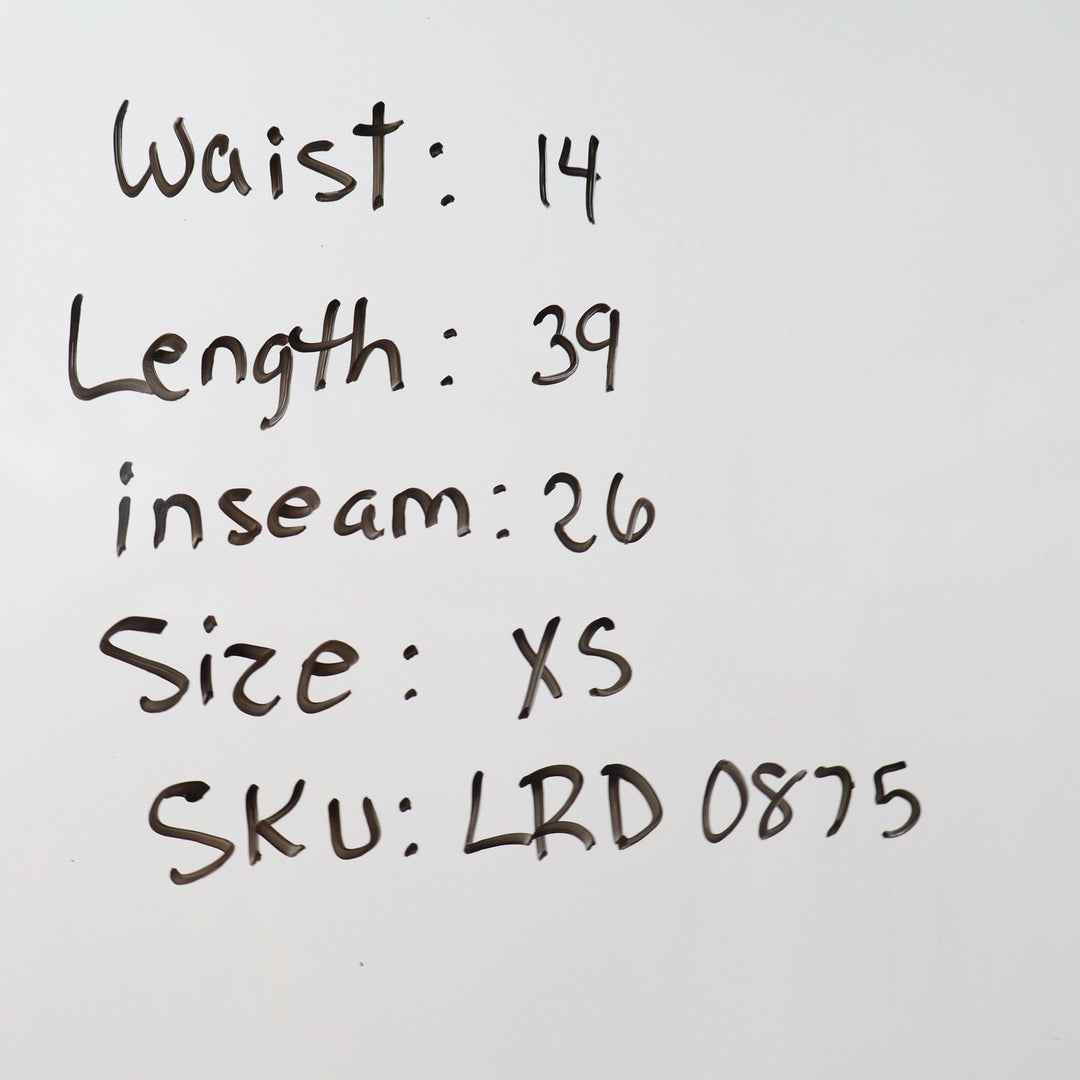 Waist: 14
Length: 39
inseam: 26
Size: XS
SKU: LRD 0875